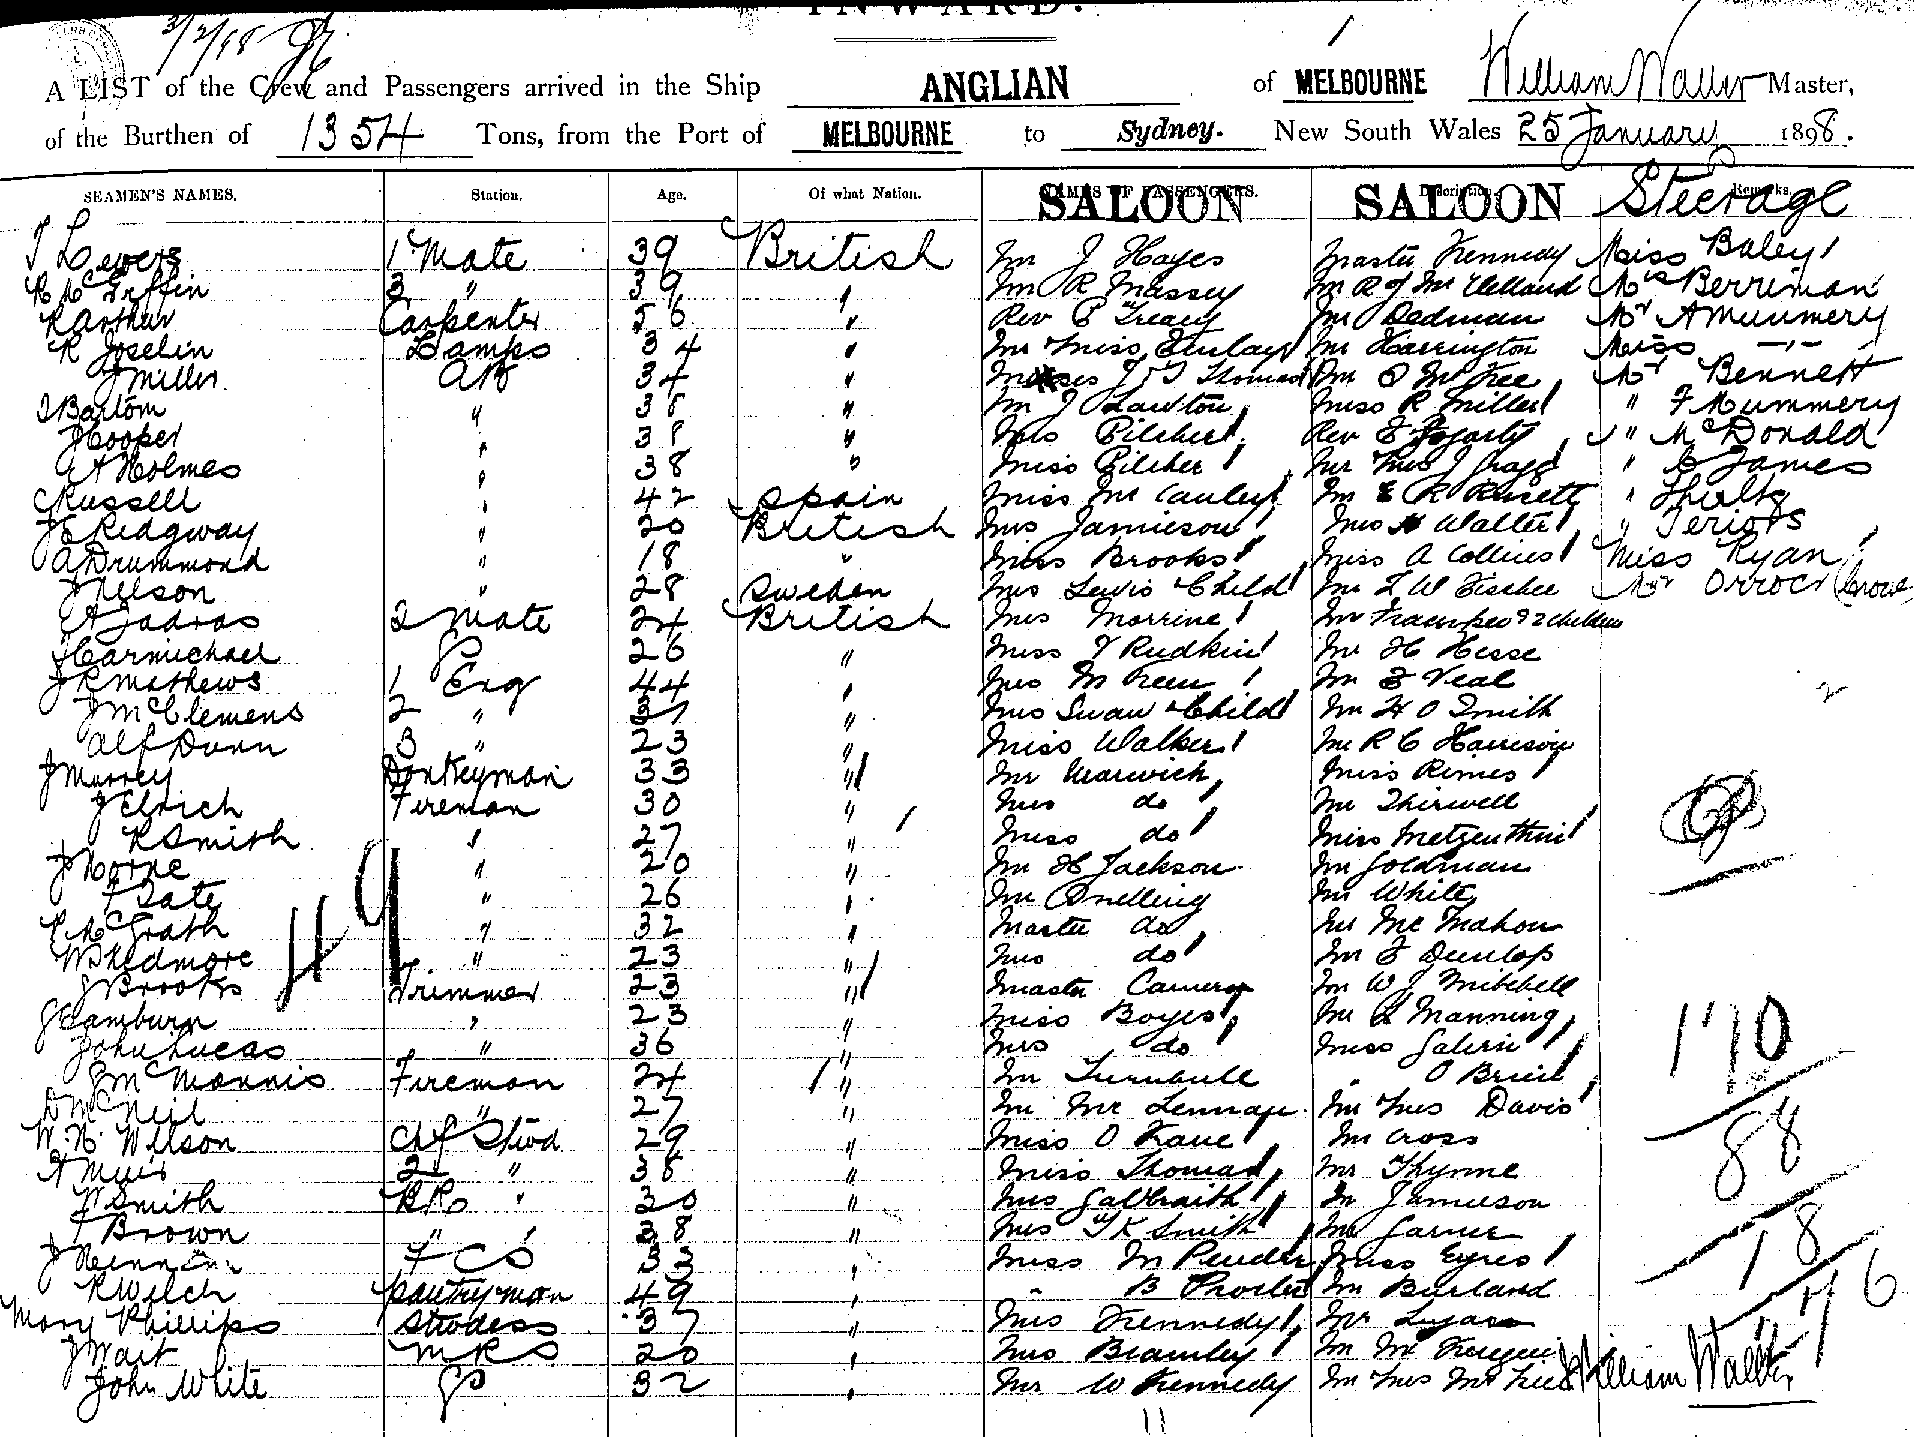 INWARD.
3/2/98
A LIST of the Crew and Passengers arrived in the Ship ANGLIAN of MELBOURNE William Waller Master,
of the Burthen of 1354 Tons, from the Port of MELBOURNE to Sydney. New South Wales 25 January 1898.
SEAMEN'S NAMES. Station. Age. Of what Nation. NAMES OF PASSENGERS. SALOON Description. SALOON Remarks. Steerage
T Lewers 1 Mate 39 British Mr J Hayes Master Kennedy Miss Baley
3 " 39 " Mr R Massey Mr R J McClelland Mrs Berriman
R Arthur Carpenter 56 " Rev P Treacy Mr Dedman Mr A Mummery
R Joselin Lamps 34 " Mr Miss Finlay Mr Harrington Miss -"-
J Miller AB 34 " J & T Thomas Mr McFee Mr Bennett
J Bartom " 38 " Mr J Lawton Miss R Miller " F Mummery
J Cooper " 38 " Mrs Pilcher Rev F Fogarty " McDonald
A Holmes " 38 " Miss Pilcher Mr Mrs J " C James
C Russell " 42 Spain Miss McCauley Mr E R "
J E Ridgway " 20 British Mrs Jamieson Mrs Walter "
A Drummond " 18 " Miss Brooks Miss A Collins Miss Ryan
J Nelson " 28 Sweden Mrs Lewis & Child Mr L W Fischer Mr Orrock
2 Mate 24 British Mrs Morrine Mr & 2 children
J Carmichael 26 " Miss Y Rudkin Mr H Hesse
J R Mathews 1 Eng 44 " Mrs M Keen Mr F Veal
J McClemens 2 " " Mrs Swan & Child Mr H O Smith
Alf Dunn 3 " 23 " Miss Walker Mr R C Harrison
J Murrey Donkeyman 33 " Mr Warwick Miss Rimes
J Elrich Fireman 30 " Mrs do Mr Thirwell
R Smith " 27 " Miss do Miss
J Horne " 20 " Mr H Jackson Mr Goldman
F Tate " 26 " Mr Snelling Mr White
P McGrath " 32 " Master do Mr McMahon
W Skidmore " 23 " Mrs do Mr F Dunlop
J Brooks Trimmer 23 " Master Cameron Mr W J Mitchell
J Camburn " 23 " Miss Boyes Mr Manning
John Lucas " 36 " Mrs do Miss
J McMannis Fireman 24 " Mr Turnbull " O Brien
D McNeil " 27 " Mr McLennan Mr Mrs Davis
W. N. Wilson Chf Stwd 29 " Miss O Kane Mr Cross
A Muir 2 " 38 " Miss Thomas Mr Thynne
Smith " 20 " Mrs Galbraith Mr Jamieson
F Brown " 38 " Mrs T K Smith Mr Garner
J FCS 33 " Miss M Pender Miss Eyres
R Welch Pantryman 49 " " B Procter Mr Burland
Mary Phillips Stwdess 37 " Mrs Kennedy Mr
J Wait MRS 20 " Mrs Bramley Mr
John White 32 " Mr W Kennedy Mr Mrs
49
170
88
18
76
William Waller